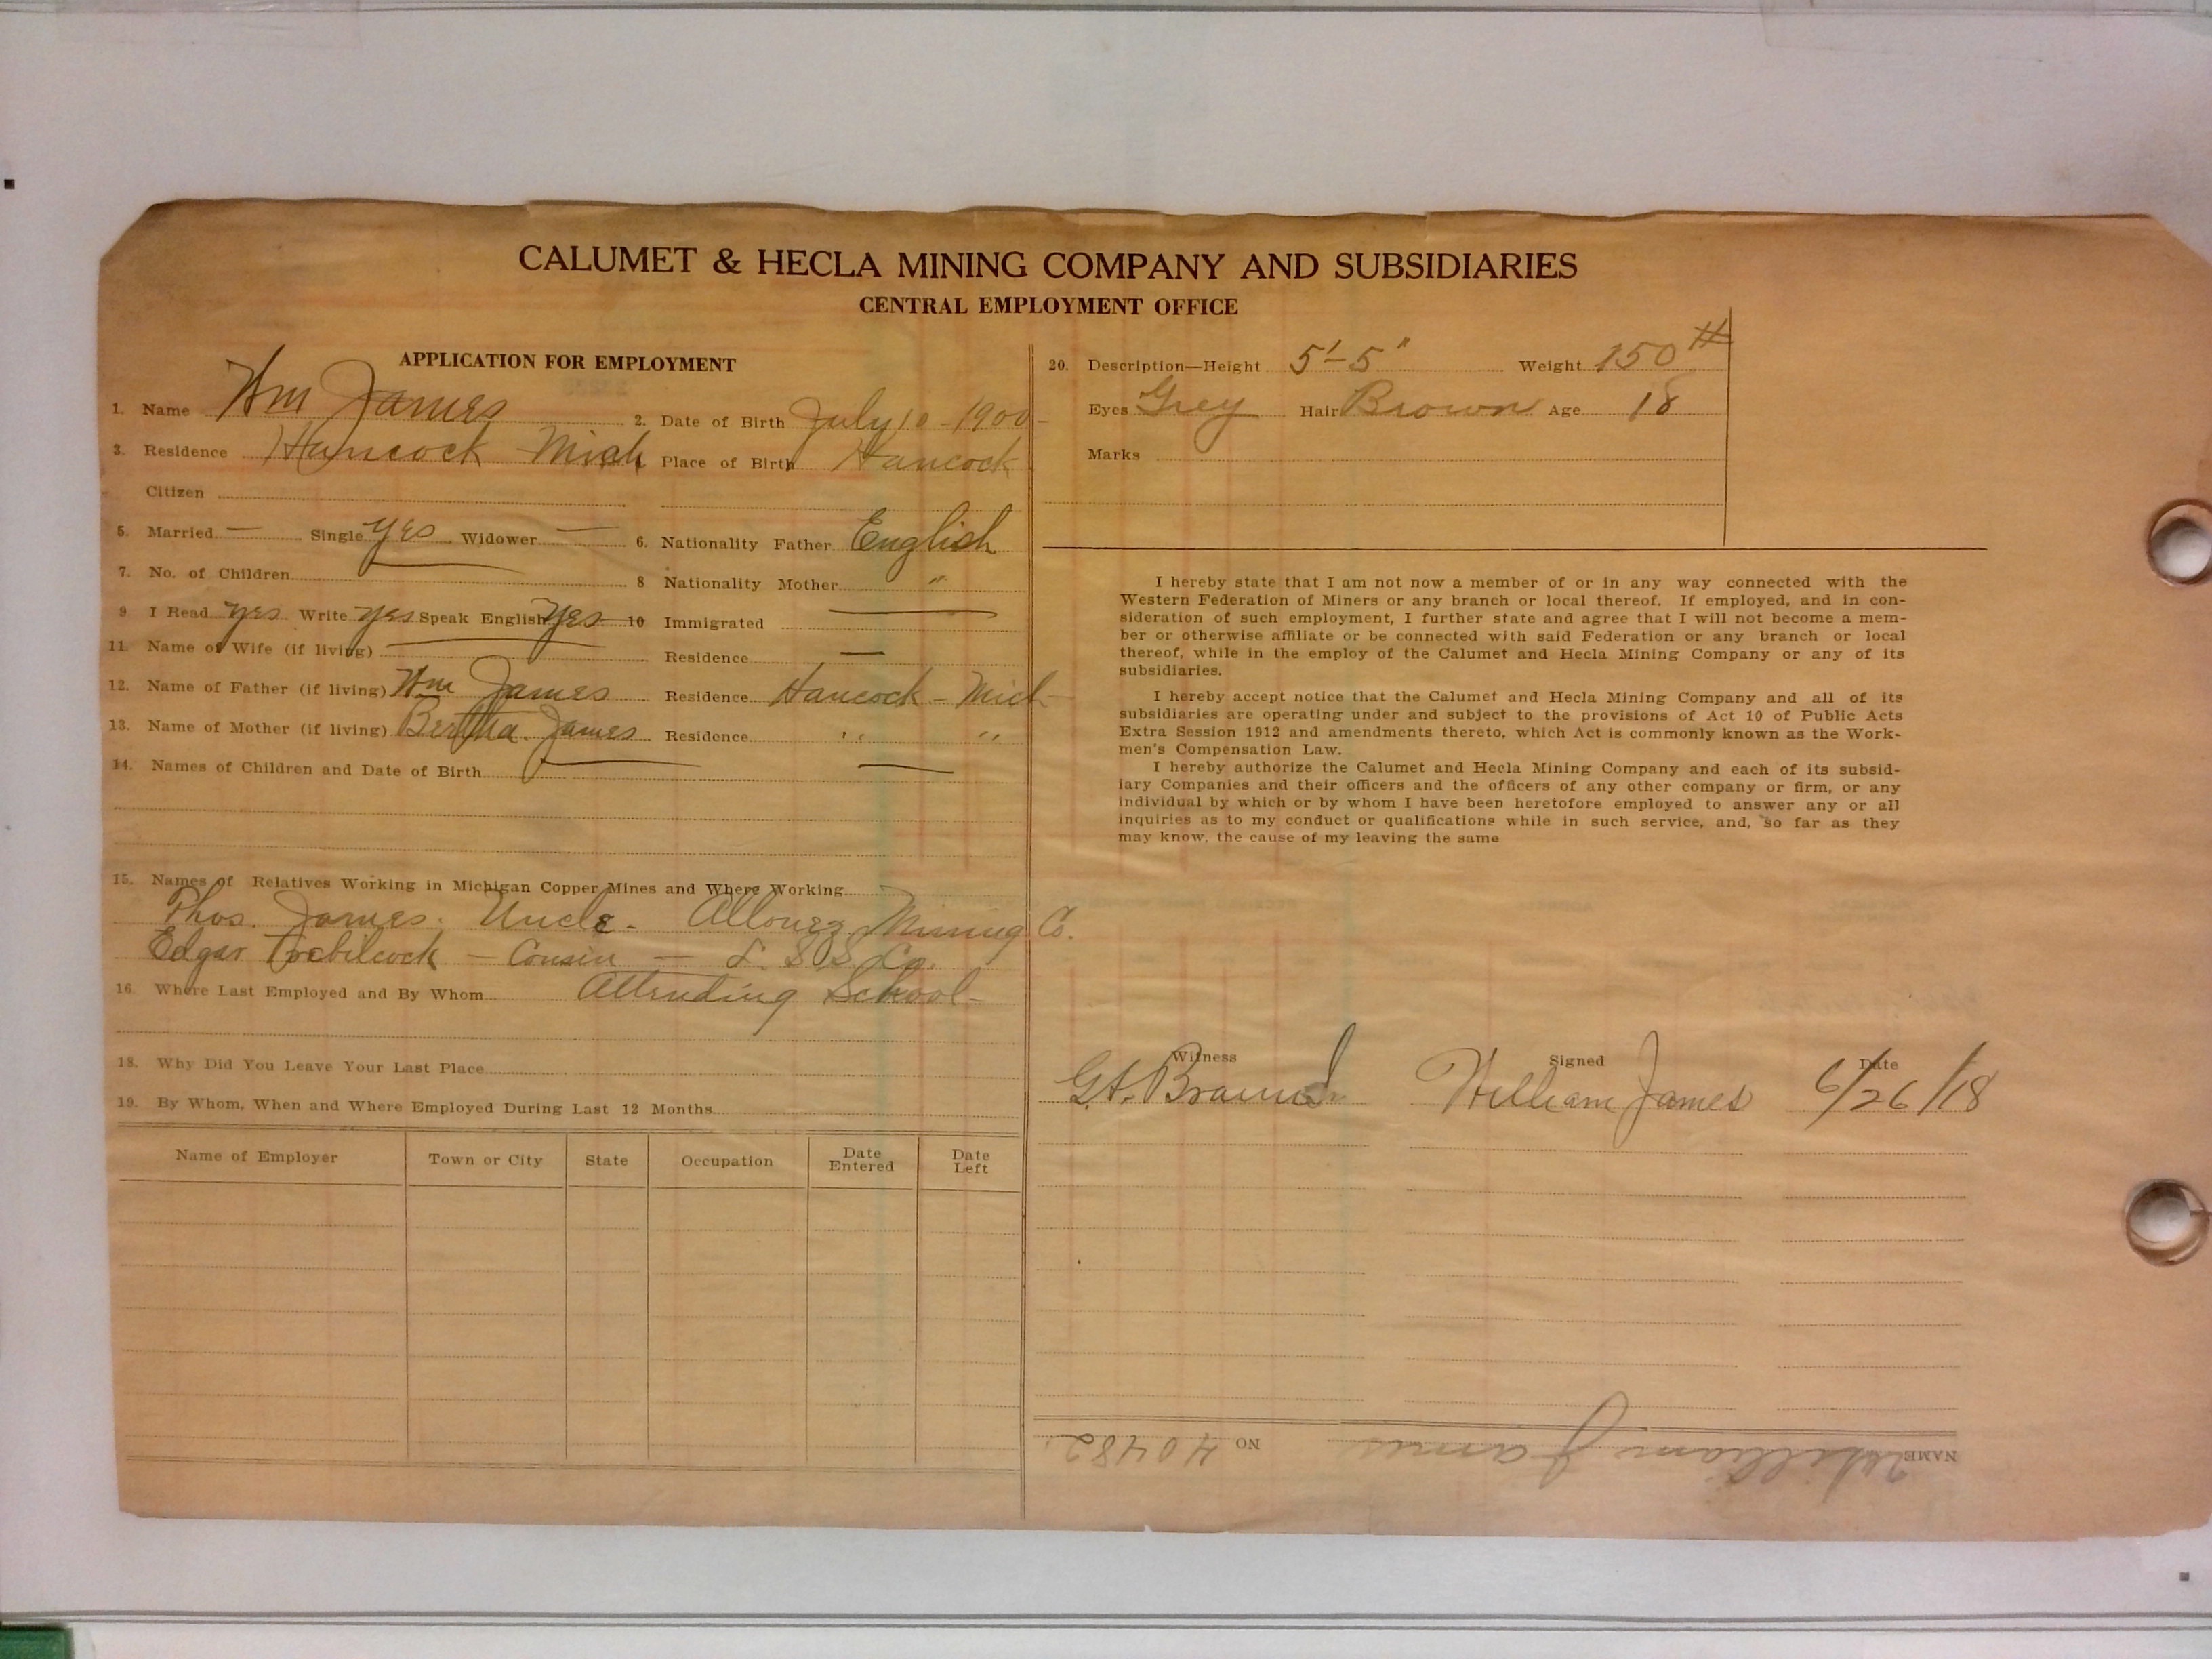 CALUMET & HECLA MINING COMPANY AND SUBSIDIARIES
CENTRAL EMPLOYMENT OFFICE
APPLICATION FOR EMPLOYMENT
1. Name Wm James 2. Date of Birth July 10 - 1900
3. Residence Hancock Mich Place of Birth Hancock
Citizen
5. Married — Single yes Widower — 6. Nationality Father English
7. No. of Children 8 Nationality Mother "
9. I Read yes Write yes Speak English yes 10 Immigrated —
11. Name of Wife (if living) — Residence —
12. Name of Father (if living) Wm James Residence Hancock - Mich
13. Name of Mother (if living) Bertha James Residence " "
14. Names of Children and Date of Birth —
15. Names of Relatives Working in Michigan Copper Mines and Where Working
Thos. James. Uncle - Allouez Mining Co.
Edgar Trebilcock - Cousin - L. S. S. Co.
16. Where Last Employed and By Whom Attending School -
18. Why Did You Leave Your Last Place
19. By Whom, When and Where Employed During Last 12 Months
Name of Employer Town or City State Occupation Date Entered Date Left
20. Description—Height 5'-5" Weight 150 #
Eyes Grey Hair Brown Age 18
Marks
I hereby state that I am not now a member of or in any way connected with the
Western Federation of Miners or any branch or local thereof. If employed, and in con-
sideration of such employment, I further state and agree that I will not become a mem-
ber or otherwise affiliate or be connected with said Federation or any branch or local
thereof, while in the employ of the Calumet and Hecla Mining Company or any of its
subsidiaries.
I hereby accept notice that the Calumet and Hecla Mining Company and all of its
subsidiaries are operating under and subject to the provisions of Act 10 of Public Acts
Extra Session 1912 and amendments thereto, which Act is commonly known as the Work-
men's Compensation Law.
I hereby authorize the Calumet and Hecla Mining Company and each of its subsid-
iary Companies and their officers and the officers of any other company or firm, or any
individual by which or by whom I have been heretofore employed to answer any or all
inquiries as to my conduct or qualifications while in such service, and, so far as they
may know, the cause of my leaving the same
Witness Signed Date
William James 6/26/18
NAME William James NO 40482